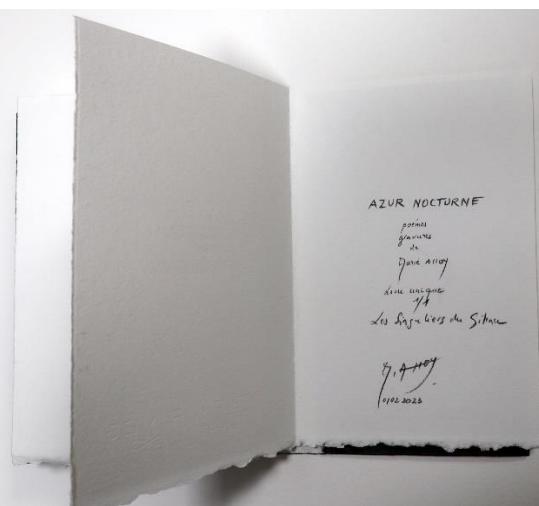 AZUR NOCTURNE
poèmes
gravures
de
Marie Alloy
Livre unique
1/1
Les Singuliers du Silence
M. Alloy
01 02 2023